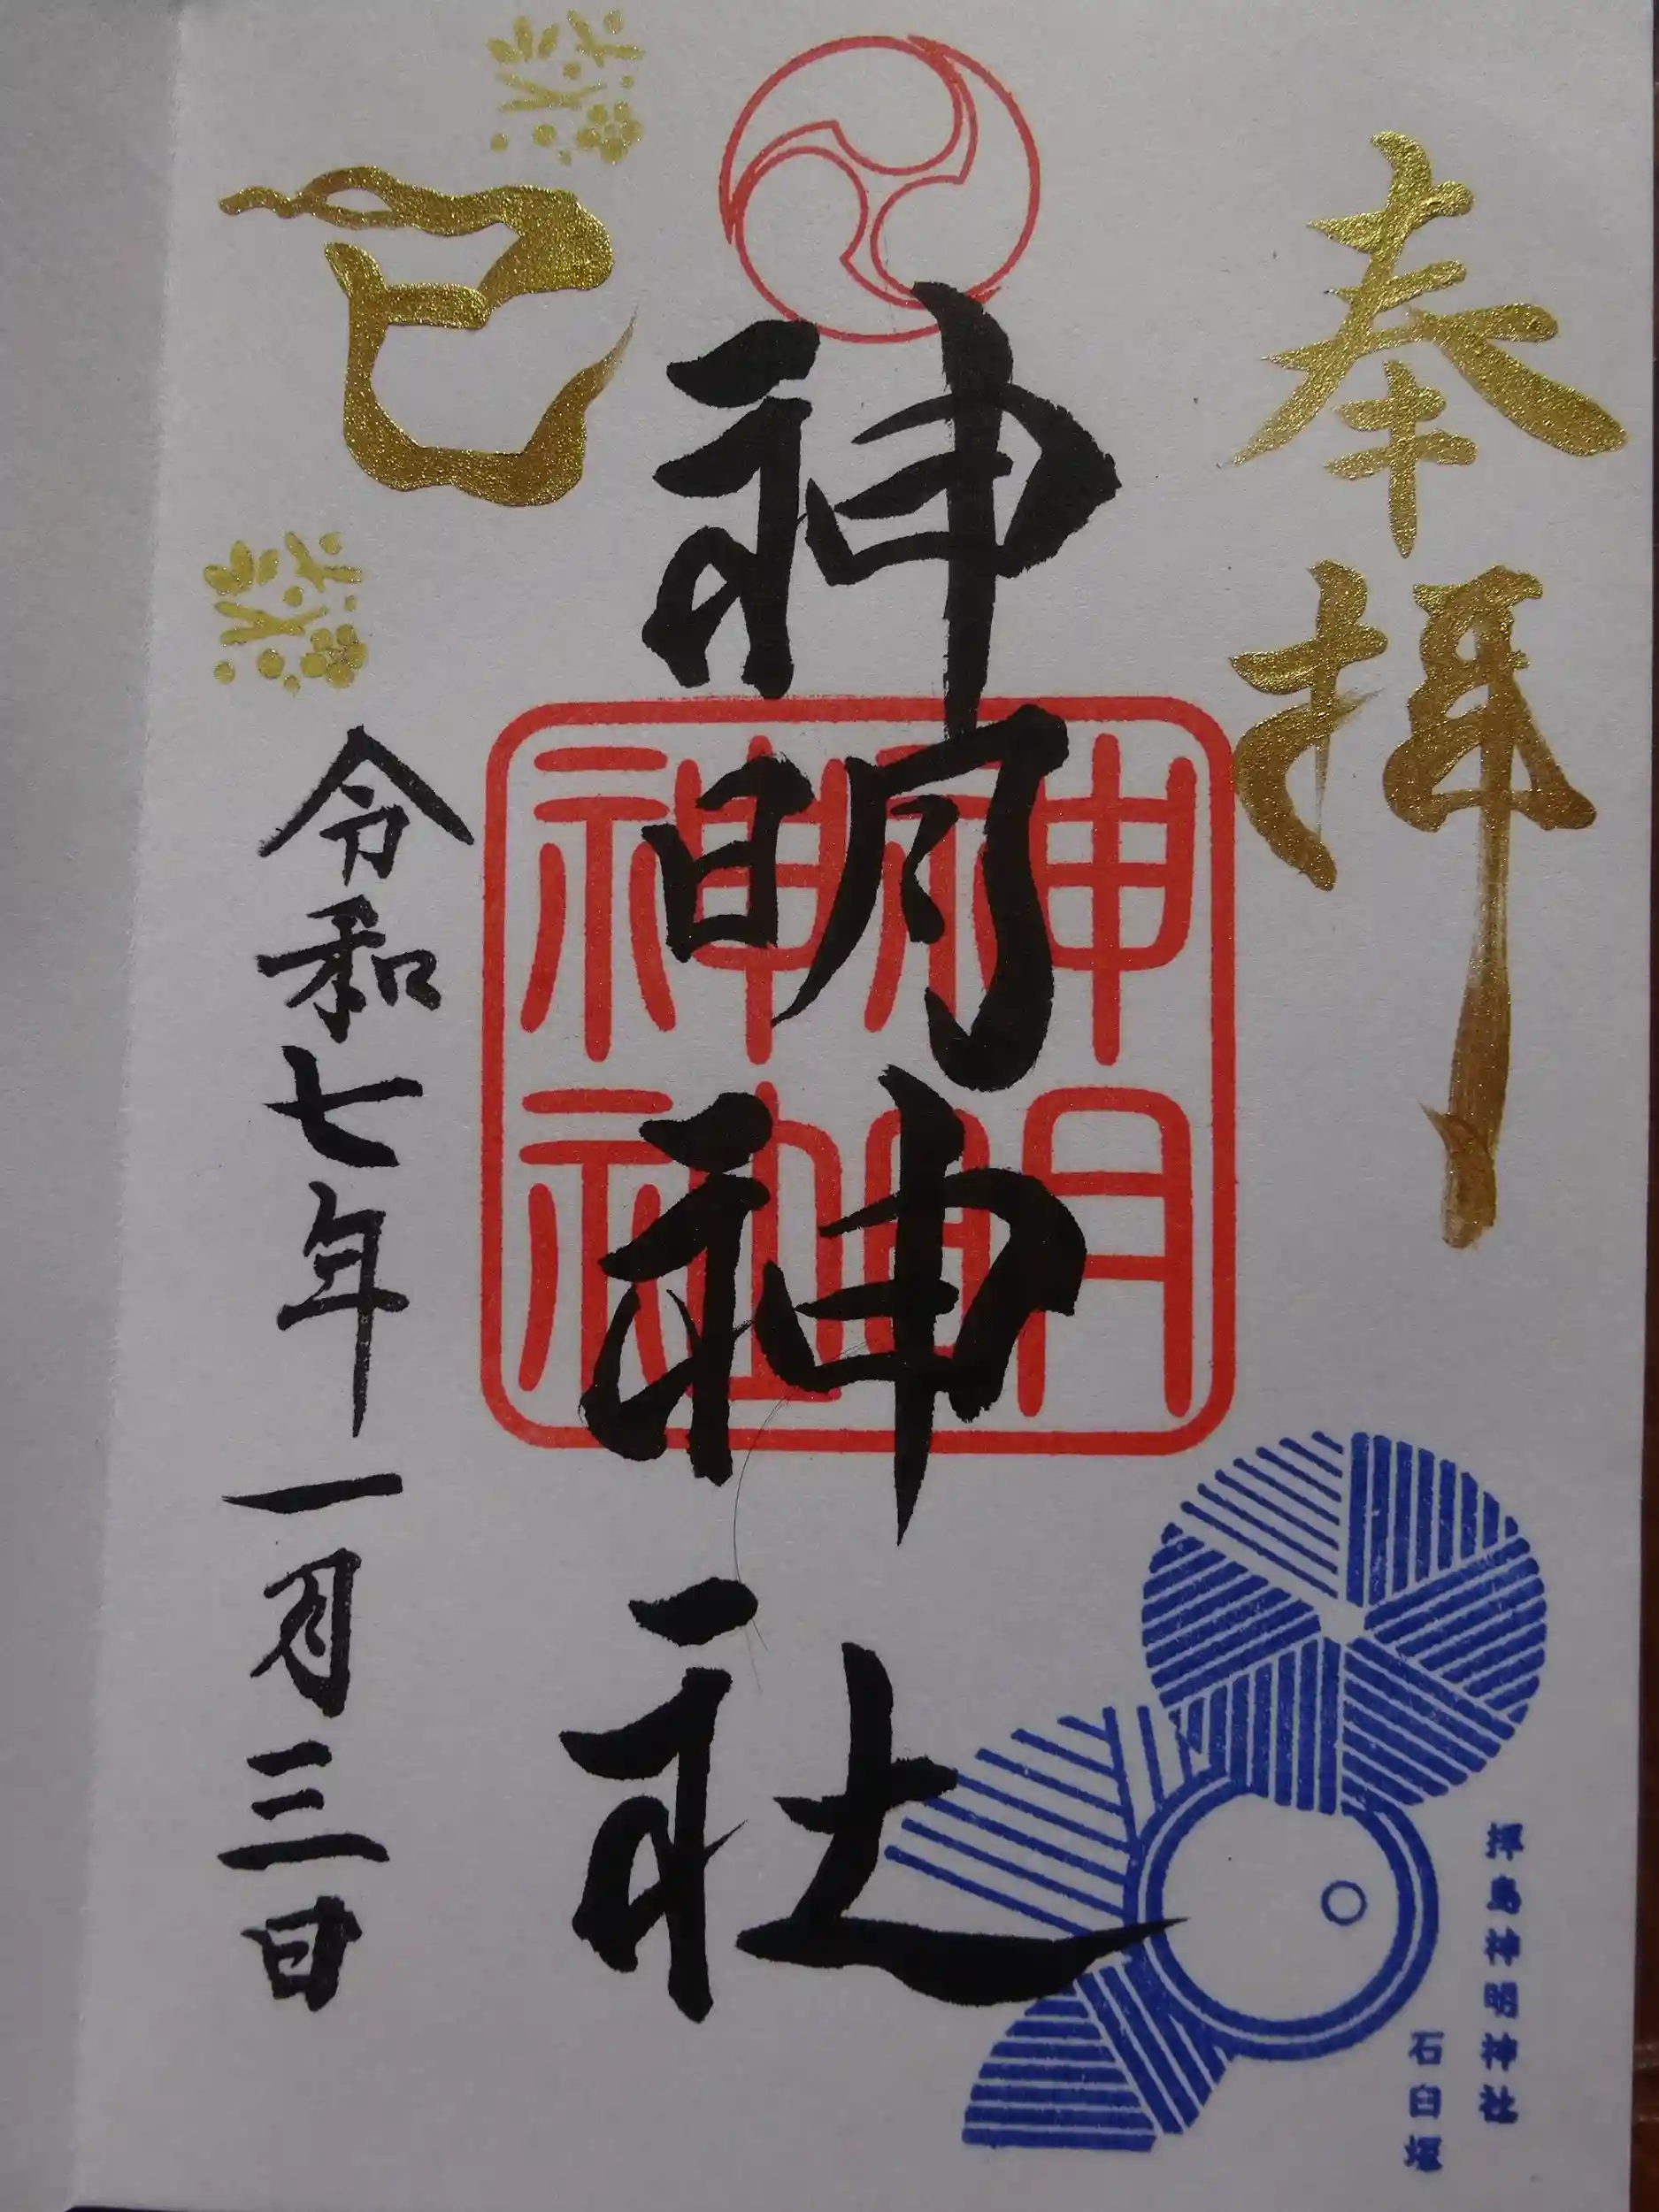 奉拝
神明神社
神明神社
揮鳥神明神社
石臼塚
巳
令和七年一月三日